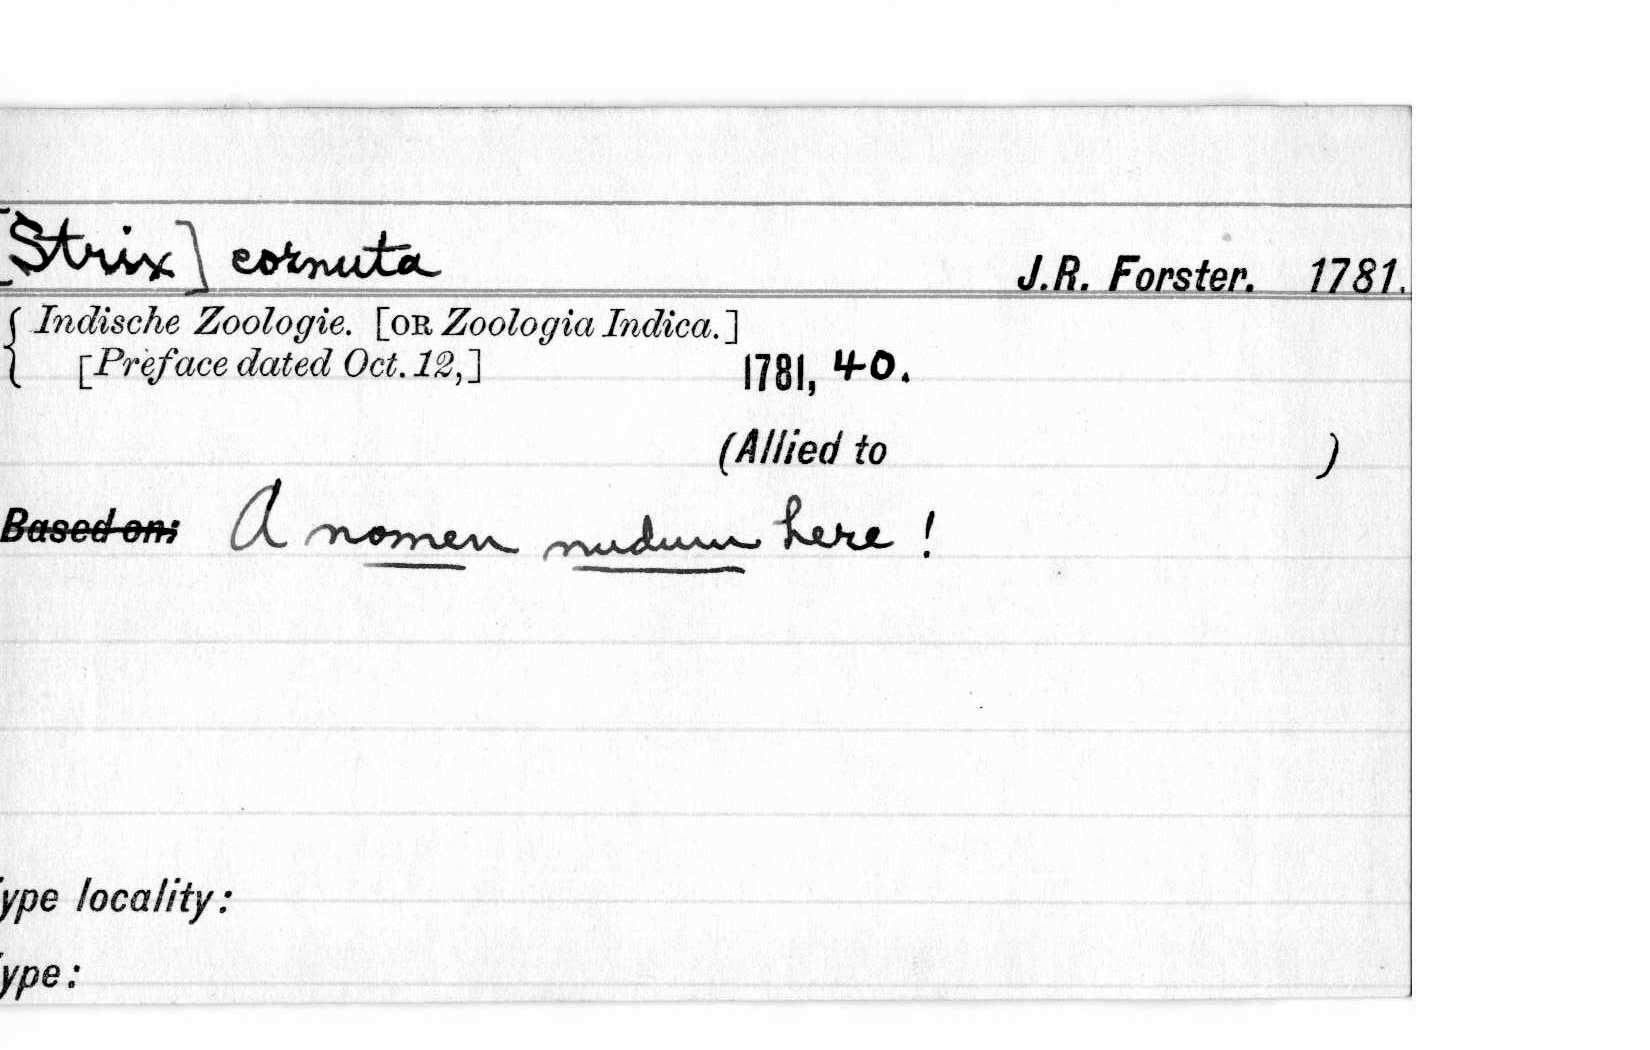 [Strix] cornuta J.R. Forster. 1781.
{ Indische Zoologie. [OR Zoologia Indica.]
[Preface dated Oct. 12,] 1781, 40.
(Allied to )
Based on: A nomen nudum here !
ype locality:
ype: